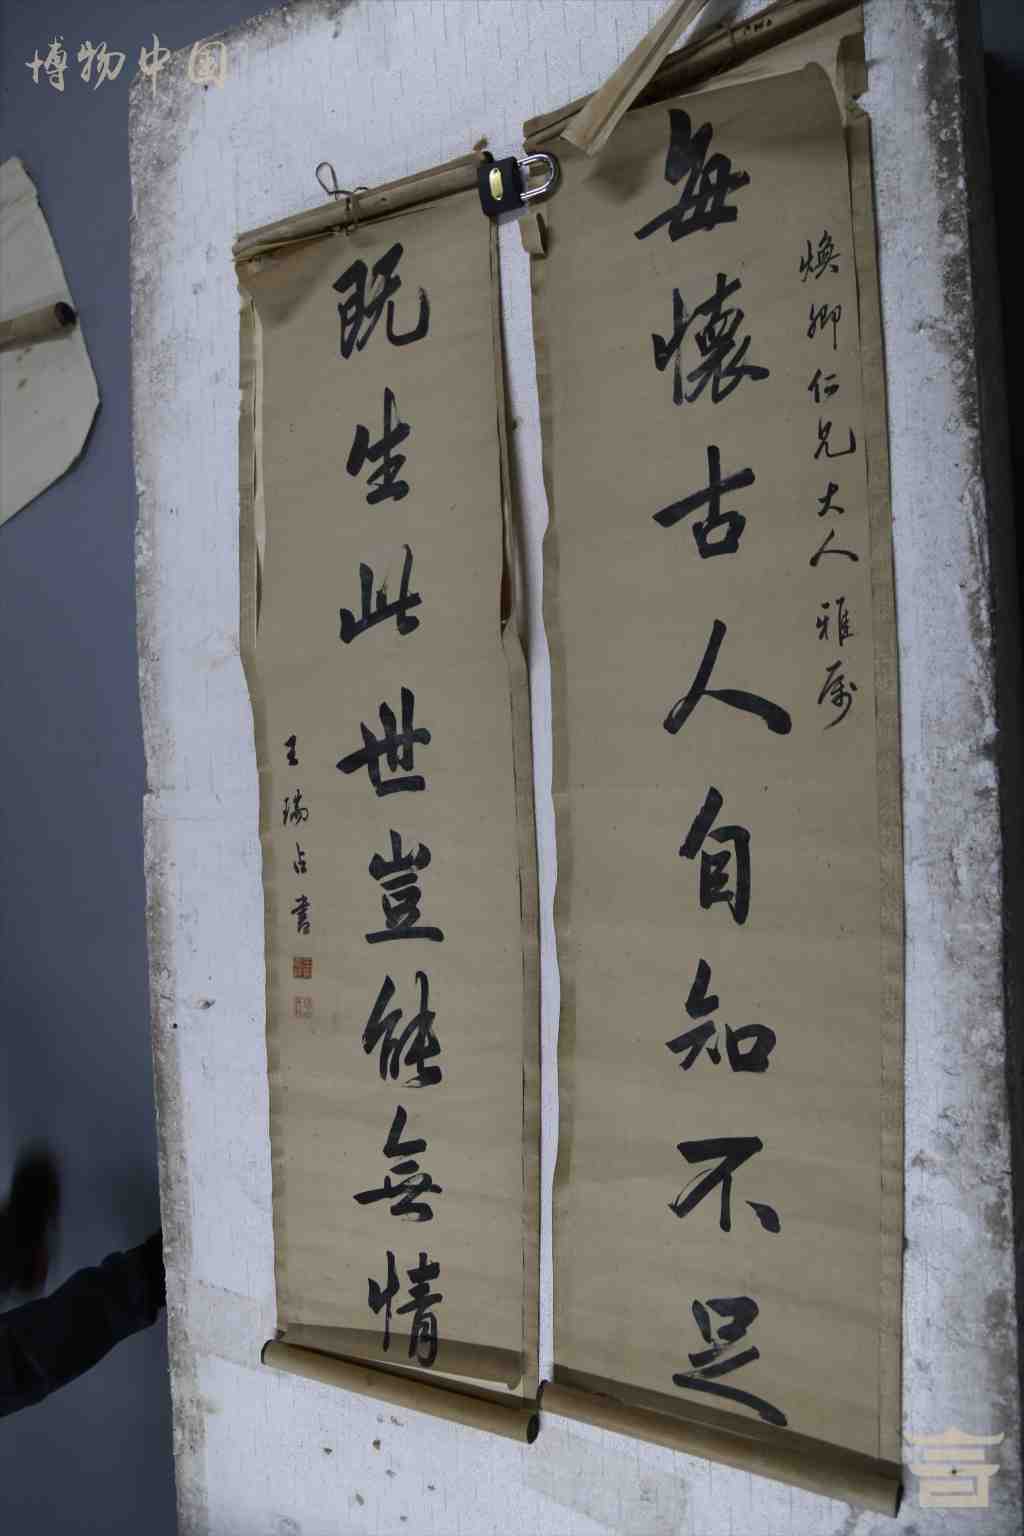 博物中国
煥卿仁兄大人雅属
每懷古人自知不足
既生此世豈能無情
王瑞占書